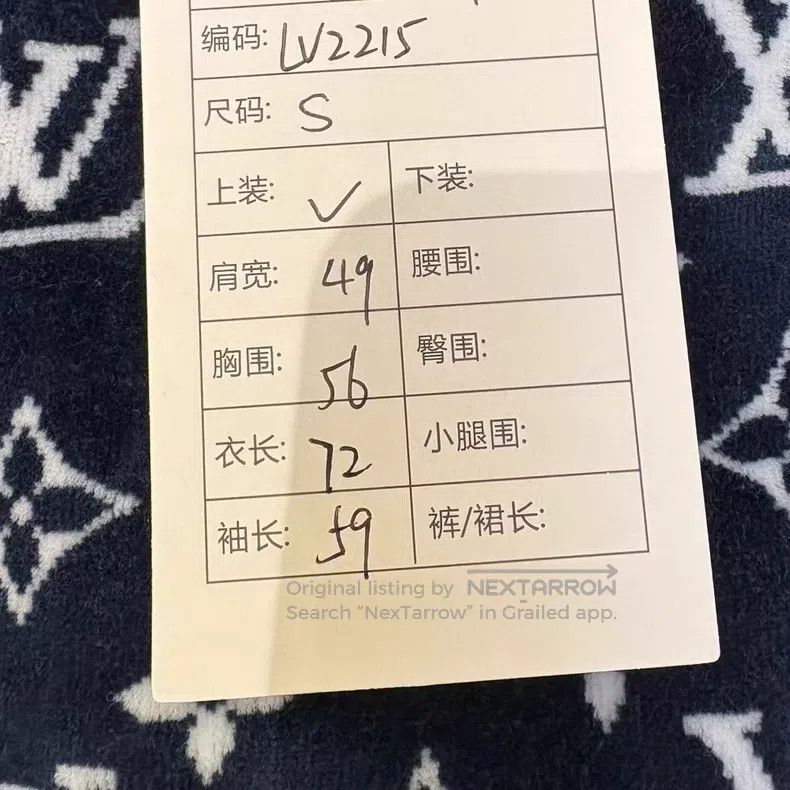 编码: LV2215
尺码: S
上装: ✓ 下装:
肩宽: 49 腰围:
胸围: 56 臀围:
衣长: 72 小腿围:
袖长: 59 裤/裙长:
Original listing by NEXTARROW
Search “NexTarrow” in Grailed app.